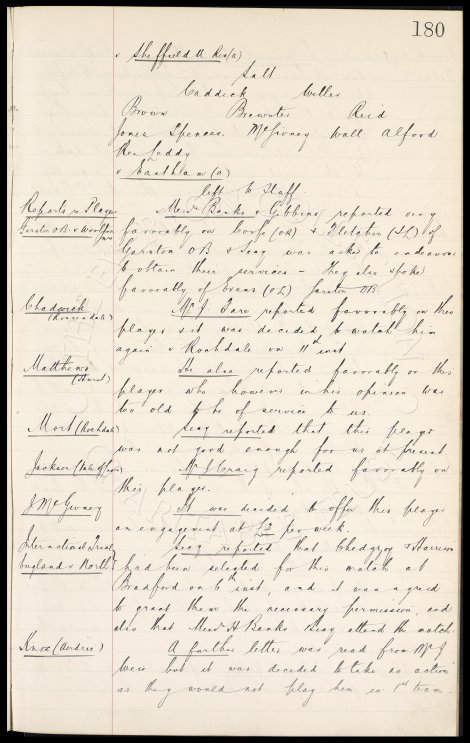 180
v Sheffield U Res (a)
Salt
Caddick Willis
Brown Brewster Reid
Jones Spencer McGivney Wall Alford
Res Leddy
v Eastham (a)
left to Staff
Reports re Players
Garston OB v Woolton
Messrs Banks & Gibbins reported very
favorably on (OR) & Fletcher (IL) of
Garston OB & Secy was asked to endeavour
to obtain their services – They also spoke
favorably of Evans (OL) Garston OB
Chadwick
(Rossendale)
Mr J. Fare reported favorably on this
player & it was decided to watch him
again v Rochdale on 11th inst
Matthews
(Hurst)
He also reported favorably on this
player who however in his opinion was
too old to be of service to us.
Mort (Rochdale)
Secy reported that this player
was not good enough for us at present.
Jackson (Vale of Leven)
Mr J Craig reported favorably on
this player.
J McGivney
It was decided to offer this player
an engagement at £2 per week.
International Trial
England v North
Secy reported that Chedgzoy & Harrison
had been selected for this match at
Bradford on 6th inst, and it was agreed
to grant them the necessary permission, and
also that Messrs H Banks & Secy attend the match
Knox (Airdrie)
A further letter was read from Mr J
Weir but it was decided to take no action
as they would not play him in 1st team.